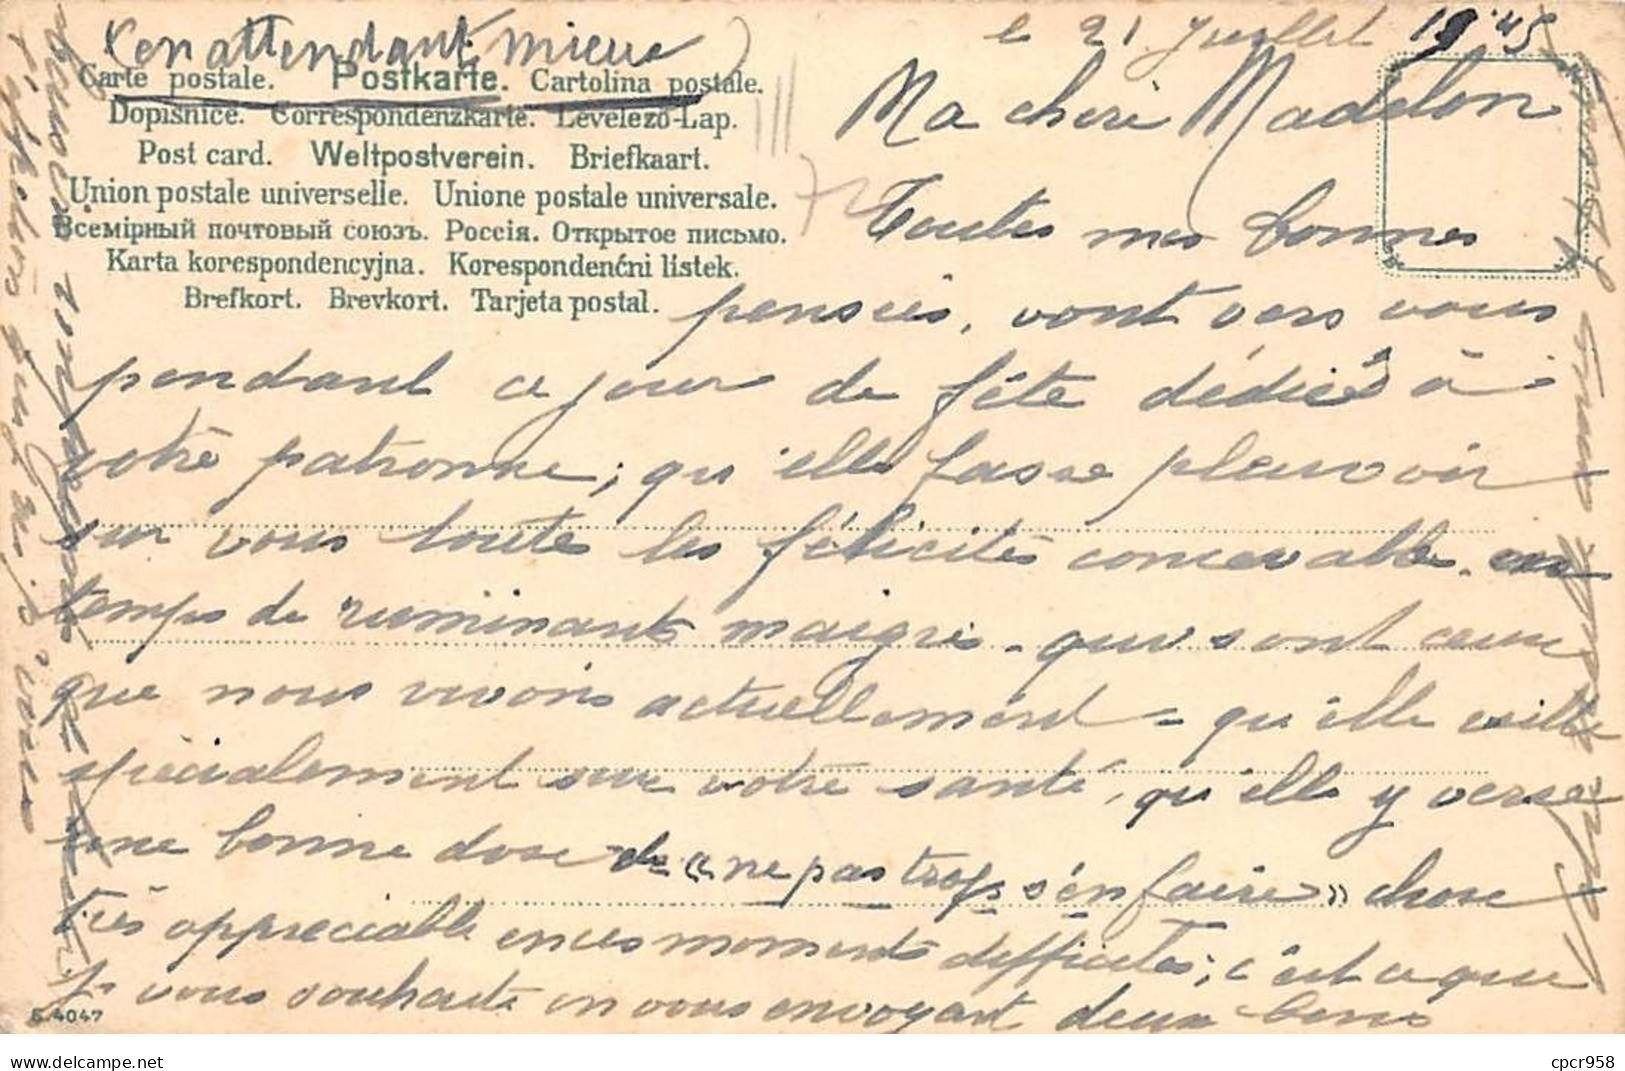 (en attendant mieux)
le 21 Juillet 1945
Carte postale. Postkarte. Cartolina postale.
Dopisnice. Correspondenzkarte. Levelező-Lap.
Post card. Weltpostverein. Briefkaart.
Union postale universelle. Unione postale universale.
Всемірный почтовый союзъ. Россія. Открытое письмо.
Karta korespondencyjna. Korespondenčni listek.
Brefkort. Brevkort. Tarjeta postal.
Ma chère Madelon
Toutes mes bonnes
pensées, vont vers vous
pendant ce jour de fête dédiée à
votre patronne; qu'elle fasse pleuvoir
sur vous toutes les félicités concevables en
temps de ruminants maigres - qui sont ceux
que nous vivons actuellement - qu'elle veille
spécialement sur votre santé, qu'elle y verse
une bonne dose de « ne pas trop s'en faire » chose
très appréciable en ces moments difficiles; c'est ce que
je vous souhaite en vous envoyant deux bons
E.4047
cpcr958